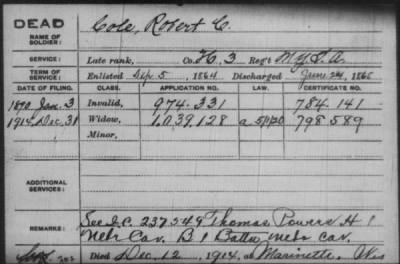 DEAD
NAME OF SOLDIER: Cole, Robert C.
SERVICE: Late rank, Co. H, 3 Reg't N.Y. L. A.
TERM OF SERVICE: Enlisted Sep 5, 1864 Discharged June 24, 1865
DATE OF FILING. CLASS. APPLICATION NO. LAW. CERTIFICATE NO.
1890 Jan. 3 Invalid, 974.331 784.141
1914 Dec. 31 Widow, 1.039.128 798589
Minor,
ADDITIONAL SERVICES:
REMARKS: See I.C. 237549 Thomas Powers H 1
Nebr Cav. B 1 Batta Nebr Cav.
Died Dec. 12, 1914, at Marinette, Wis